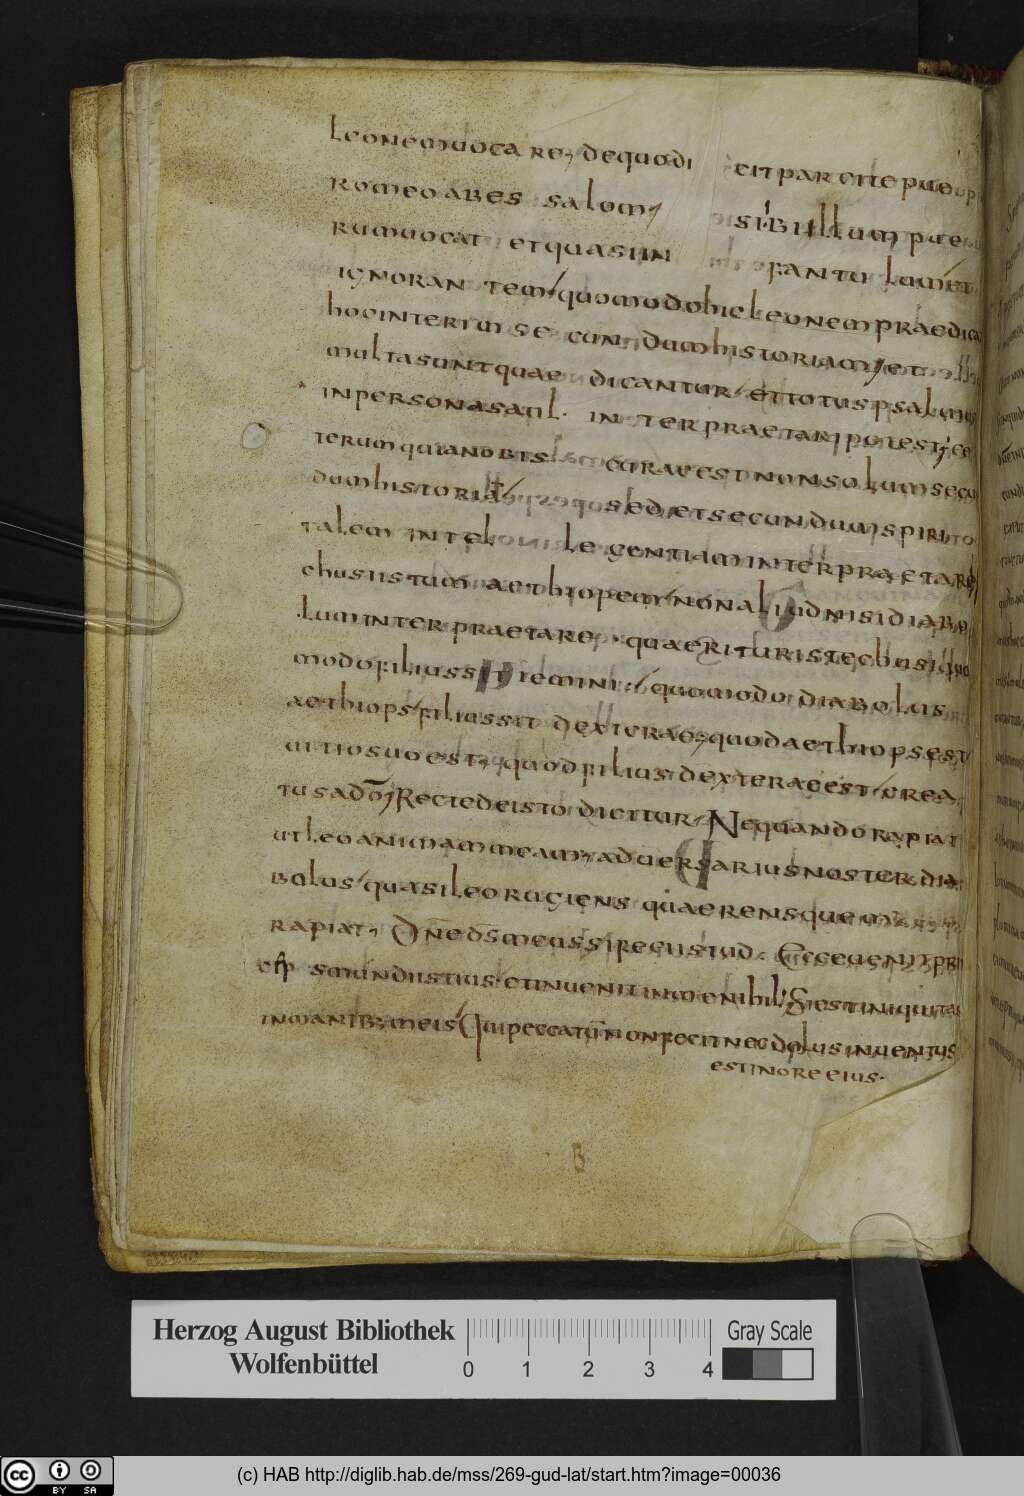 leonem uocare, de quo di cit parcite pue
ro meo abessalom, sibi illum pue
rum uocat et quasi in fantulum et
ignorantem, quomodo hic leonem praedica
hoc interim secundum historiam, et
multa sunt quae dicantur, et totus psalmus
in persona saul. interpraetari potest, ce
terum quia nobis curae est non solum secun
dum historiā, sed et secundum spiri
talem intellegentiam interpraetare,
chus iistum aethiopem, non aliud nisi diabo
lum interpraetare. quaeritur iste chus quo
modo filius si iemini, quomodo diabolus
aethiops, filius sit dexterae, quod aethiops est
uitio suo est, quod filius dexterae est, crea
tus a dō, Recte de isto dicitur, Nequando rapiat
ut leo animam meam, aduersarius noster dia
bolus, quasi leo rugiens quaerens quem
rapiat, Dn̄e ds̄ meus si feci istud. Ecce uenit pri
ceps mundi istius. et inuenit in me nihil; Si est iniquitas
in manibus meis, Qui peccatū non fecit nec dolus inuentus
est in ore eius.
B
Herzog August Bibliothek
Wolfenbüttel
0 1 2 3 4
Gray Scale
cc BY SA
(c) HAB http://diglib.hab.de/mss/269-gud-lat/start.htm?image=00036